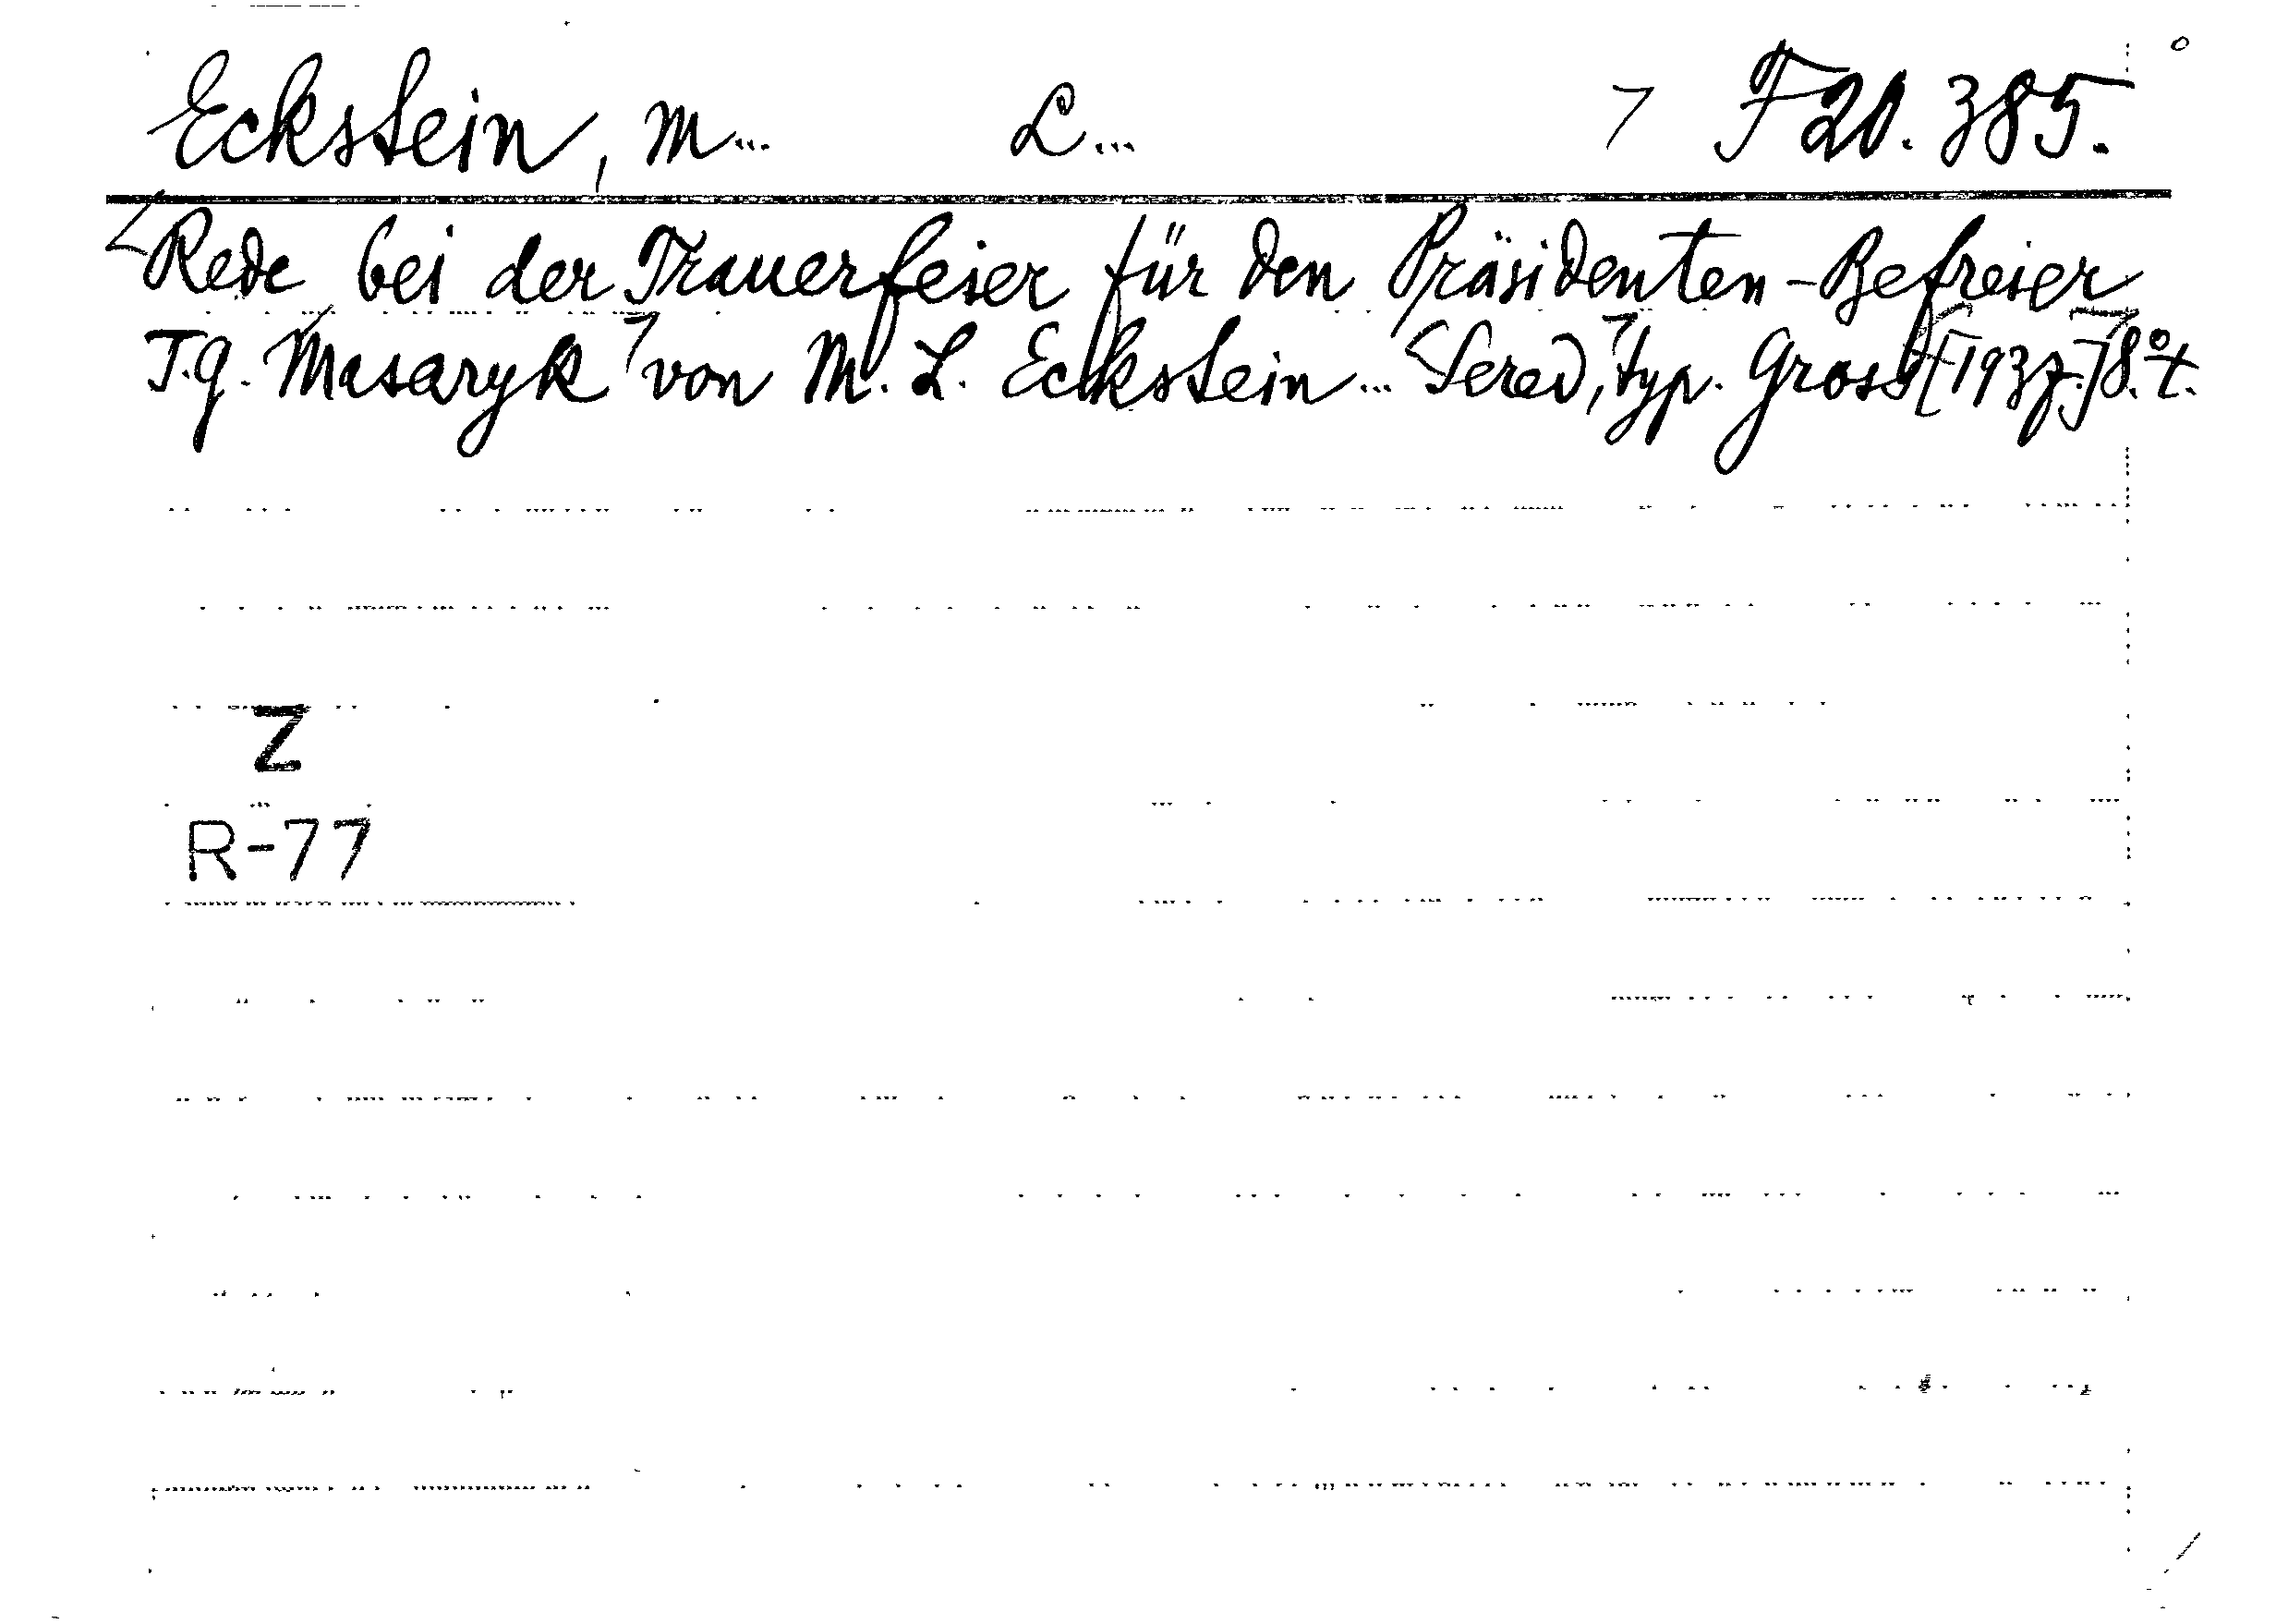 Eckstein, M... L... F 20.385.
Rede bei der Trauerfeier für den Präsidenten-Befreier
T.G. Masaryk von M. L. Eckstein... Sereď, typ. Gross [1937.] 8.° t.
Z
R-77